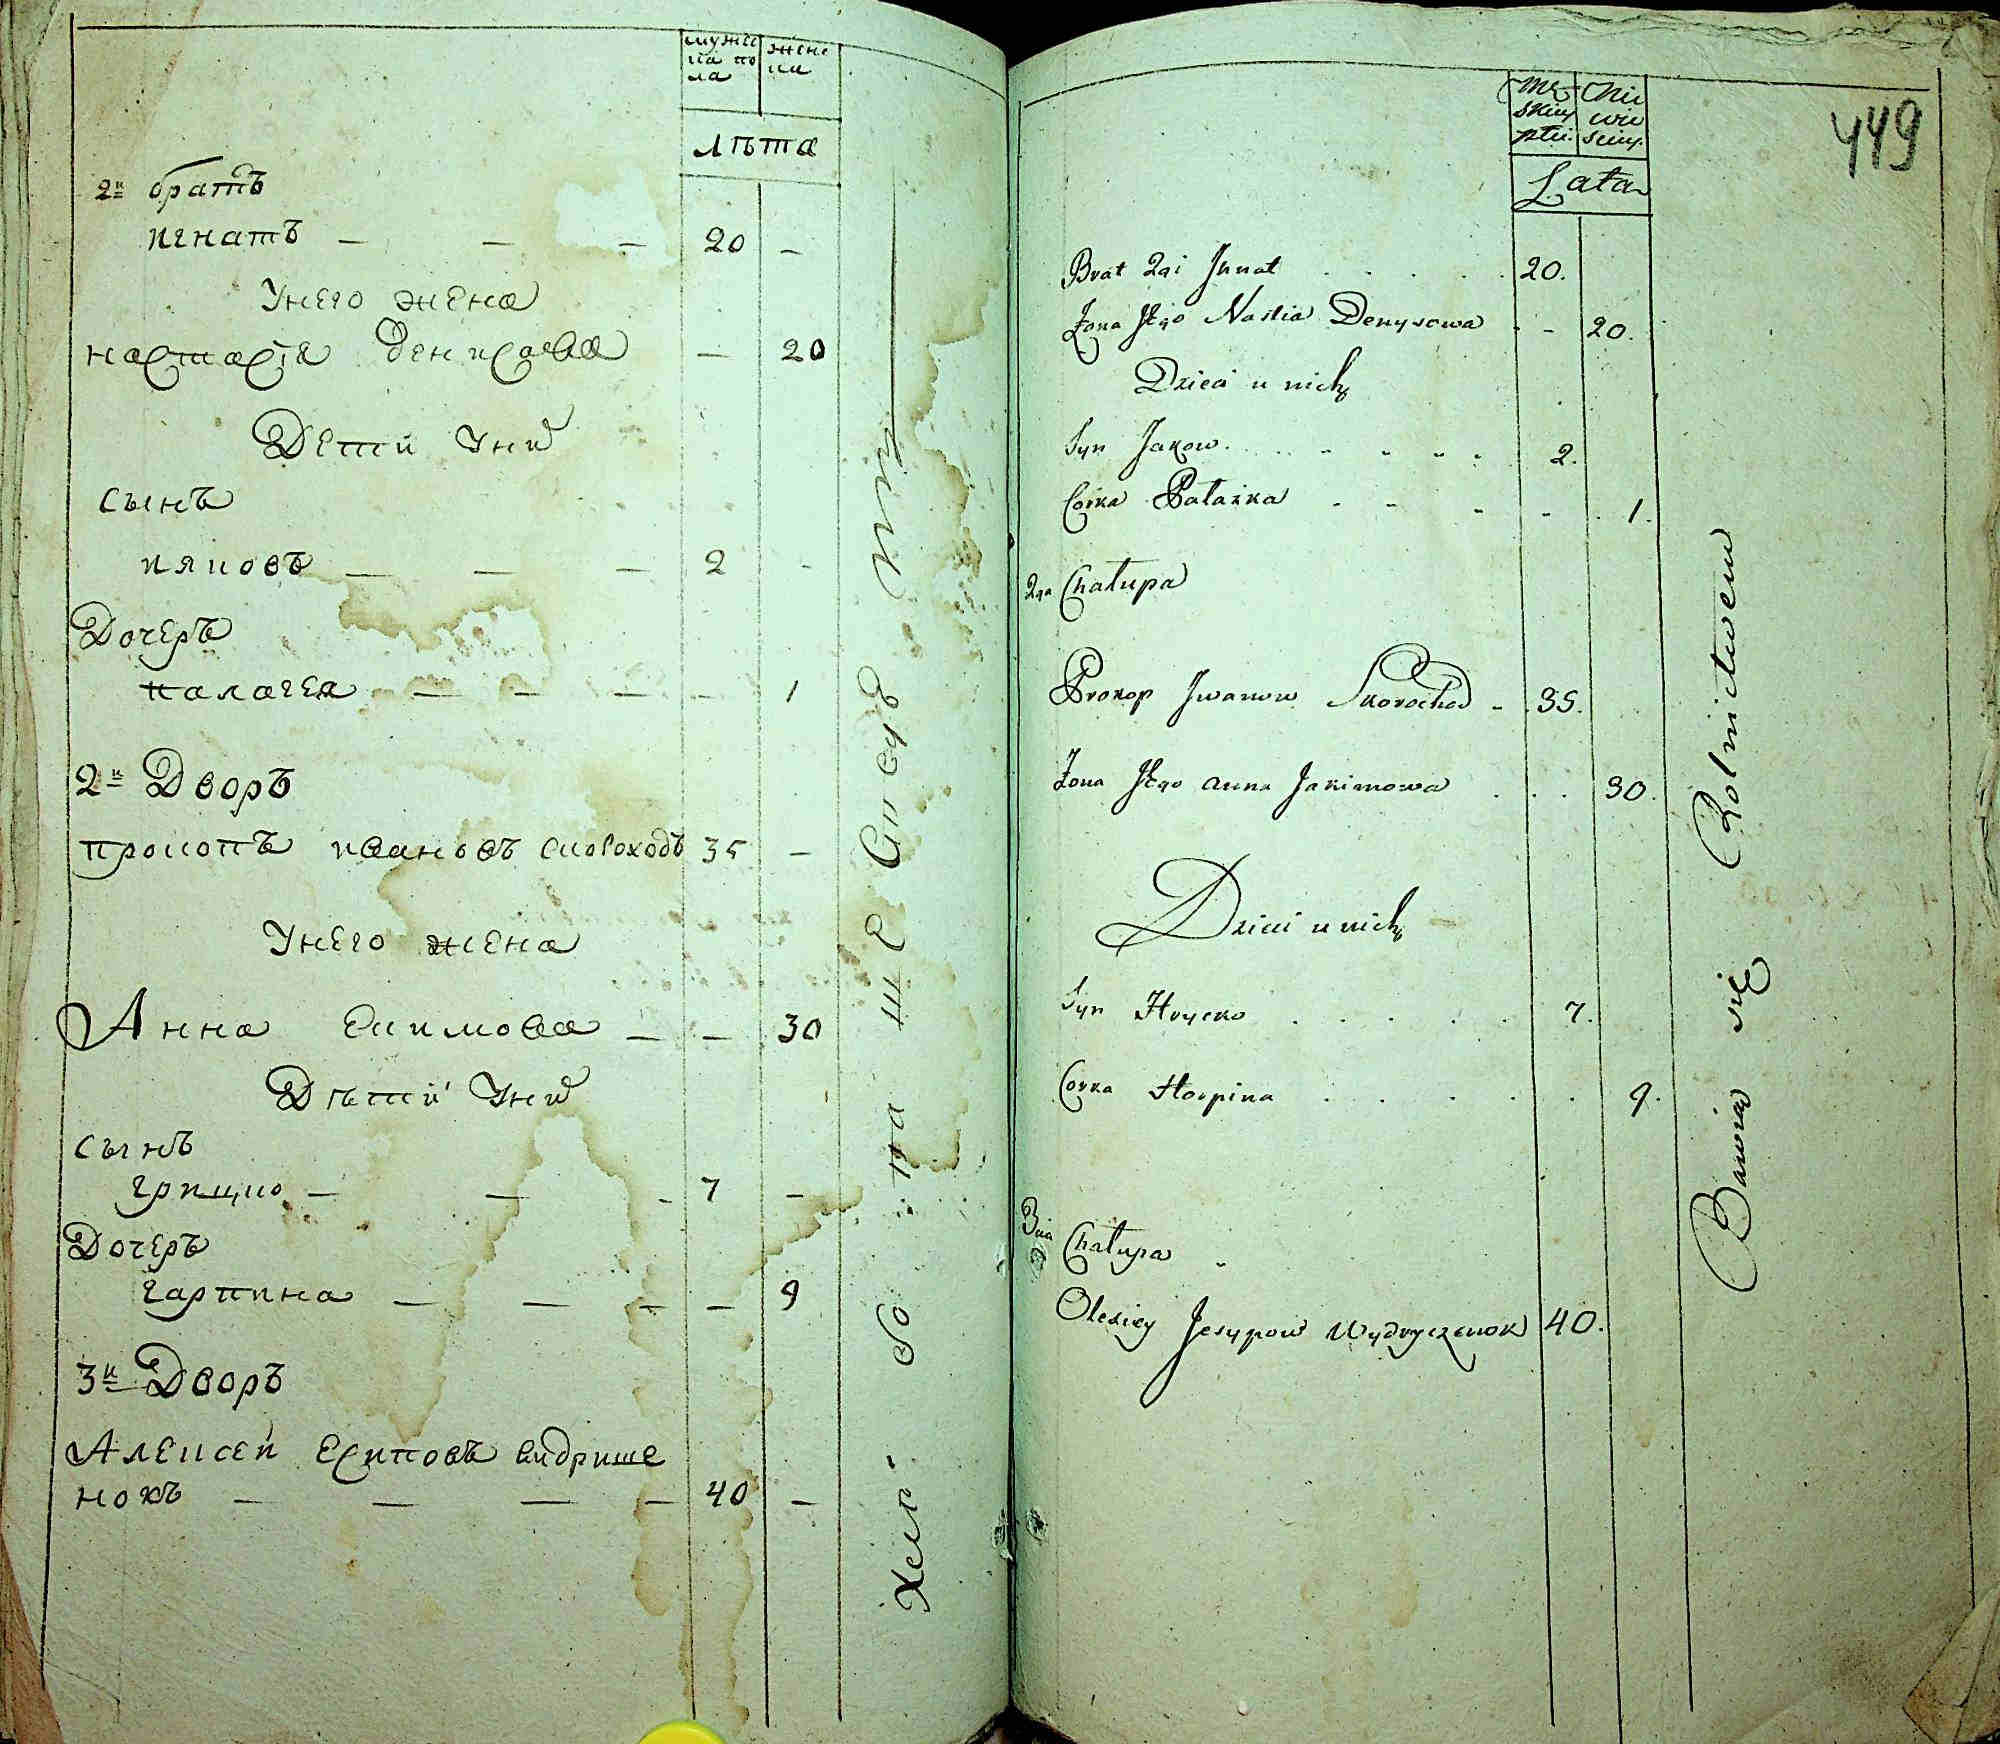 мужес
ка по
ла
женс
ки
лѣта
2й братъ
игнатъ — — — 20 —
Унего жена
настасія денисова — 20
Дети Уни
сынъ
ияковъ — — — 2 -
Дочеръ
палагея — — — — 1
2й Дворъ
прокопъ ивановъ скороходъ 35 —
Унего жена
Анна Екимова — — 30
Дѣти Уни
сынъ
грицко — — - 7 —
Дочеръ
гарпина — — — — 9
3й Дворъ
Алексей Есиповъ видрише
нокъ — — — — 40 —
449
Mę
skiey
płci
Nie
wie
sciey
Lata
Brat 2gi Jhnat . . . . . 20.
Żona Jego Nastia Denysowa - - 20.
Dzieci u nich
Syn Jakow . . . . . . 2.
Corka Pałażka . . . . . 1.
2ga Chałupa
Prokop Jwanow Skorochod - 35.
Żona Jego Anna Jakimowa . . . 30.
Dzieci u nich
Syn Hrycko . . . . . 7.
Corka Horpina . . . . . 9.
3cia Chałupa
Olexiey Jesypow Wydryczenok 40.
Bawią się Rolnictwem